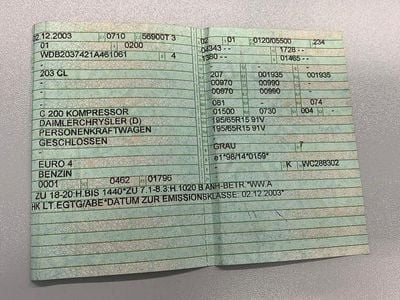 02.12.2003 0710 56900T 3
01 0200
WDB2037421A461061 4
- -
203 CL
-
C 200 KOMPRESSOR
DAIMLERCHRYSLER (D)
PERSONENKRAFTWAGEN
GESCHLOSSEN
EURO 4
BENZIN
0001 0462 01796
ZU 18-20 H.BIS 1440*ZU 7.1-8.3:H.1020 B.ANH-BETR.*WW.A
HK LT.EGTG/ABE*DATUM ZUR EMISSIONSKLASSE: 02.12.2003*
02 01 0120/05500 234
04343 - - 1728 - -
1380 - - 01465 - -
207 001935 001935
00970 00990 - -
00970 00990 - -
081 074
01500 0730 004
195/65R15 91V
195/65R15 91V
- -
GRAU 7
e1*98/14*0159*
- K WC288302